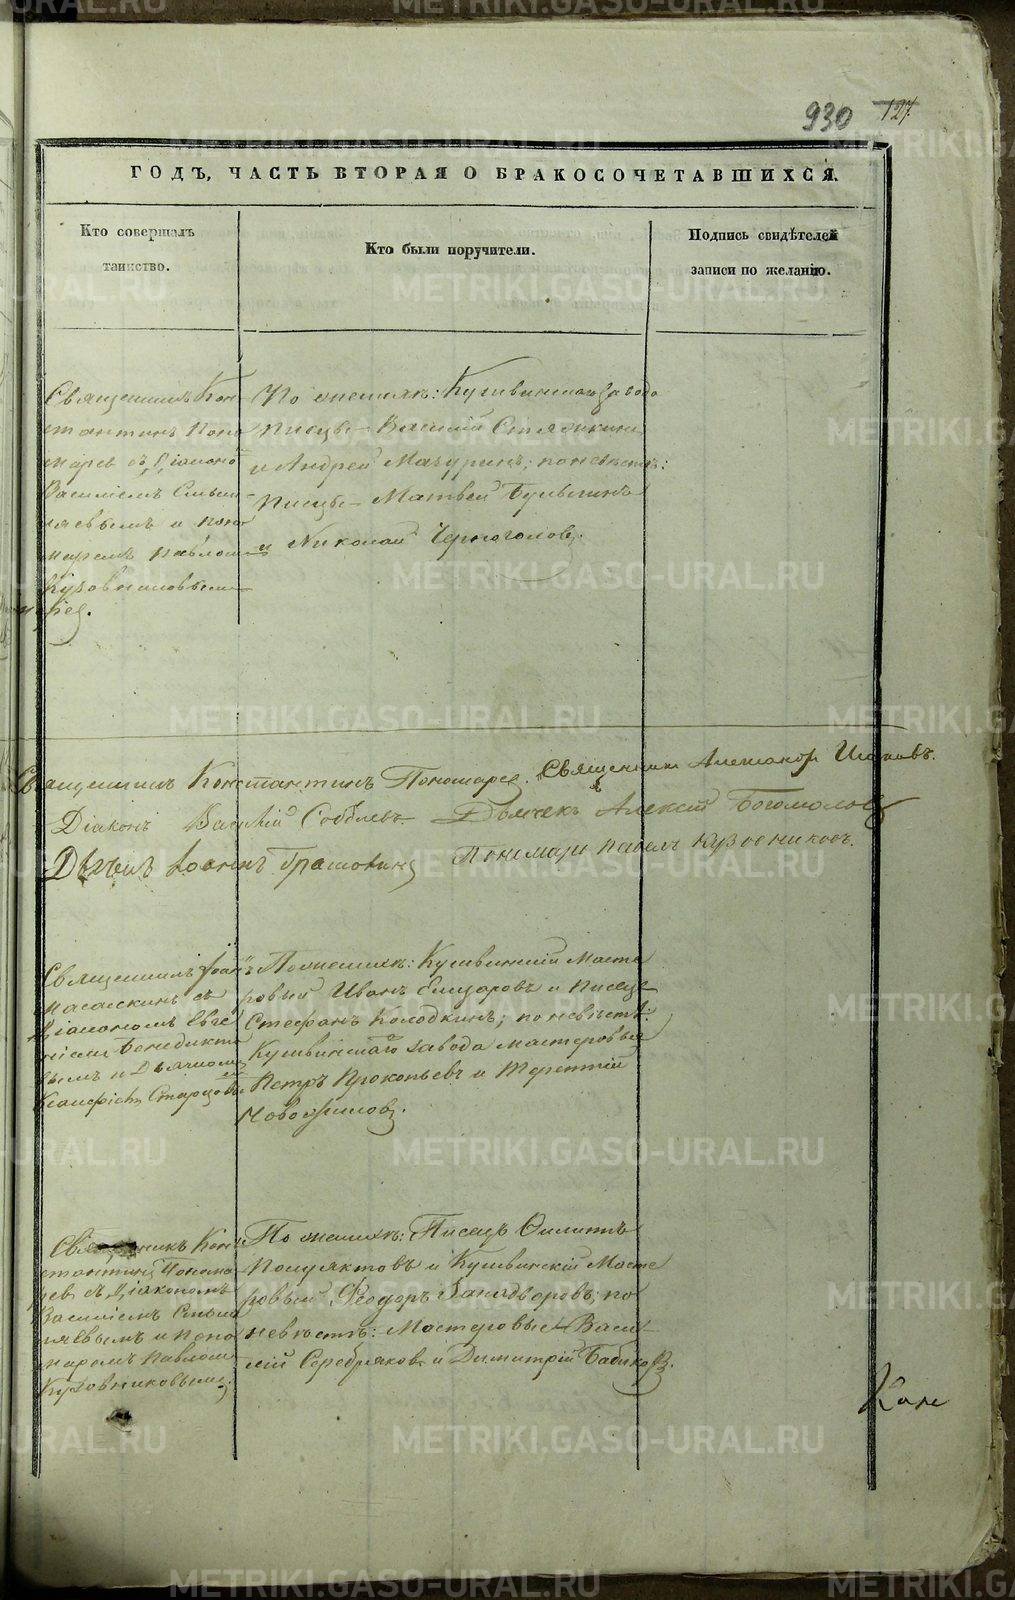 930 127.
ГОДЪ, ЧАСТЬ ВТОРАЯ О БРАКОСОЧЕТАВШИХСЯ.
Кто совершалъ
таинство.
Кто были поручители.
Подпись свидѣтелей
записи по желанію.
Священникъ Кон-
стантинъ Поно-
маревъ съ Діакономъ
Василіемъ
и поно-
маремъ Павломъ
Кузовниковымъ
По женихѣ: Кушвинскаго завода
писцы Василій Стяжкинъ
и Андрей Мачуринъ; по невѣстѣ:
писцы Матвей
и Николай Черноголовъ.
Священникъ Константинъ Пономаревъ. Священникъ Александръ
Діаконъ Василій Дьячекъ Алексѣй Богомоловъ
Дьячекъ Іоаннъ Пономарь Павелъ Кузовниковъ.
Священникъ Іоаннъ
съ
Діакономъ Евге-
ніемъ Бенедикто-
вымъ и Дьячкомъ
Старцовымъ
По женихѣ: Кушвинскій Масте-
ровый Иванъ Елизаровъ и писецъ
Стефанъ Колодкинъ; по невѣстѣ:
Кушвинскаго завода мастеровые
Петръ Прокопьевъ и Терентій
Священникъ Кон-
стантинъ Понома-
ревъ съ Діакономъ
Василіемъ
и поно-
маремъ Павломъ
Кузовниковымъ.
По женихѣ: Писецъ Филиппъ
Полуяктовъ и Кушвинскій Масте-
ровый Ѳеодоръ; по
невѣстѣ: Мастеровые Васи-
лій Серебряковъ и Димитрій Бабиковъ.
METRIKI.GASO-URAL.RU